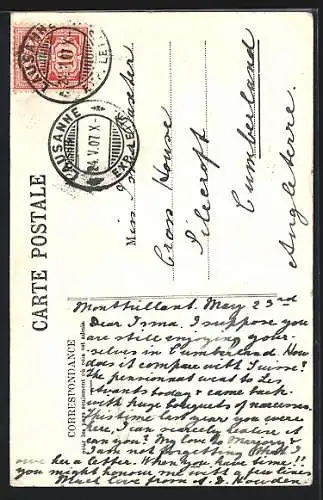 LAUSANNE
10
LAUSANNE
24.V.07.X-
EXP. LET.
CARTE POSTALE
Miss Irma
Cross House
Silecroft
Cumberland
Angleterre.
CORRESPONDANCE
Montbrillant. May 23rd
Dear Irma. I suppose you
are still enjoying your-
selves in Cumberland. How
does it compare with Suisse?
The pensionnat went to Les
Avants today & came back
with huge bouquets of narcisses.
This time last year you were
here, I can scarcely believe it
can you? My love to Marjory &
I am not forgetting that I
owe her a letter. When you have time!! you
might honour me with a few lines
Much love from A. D. Howden